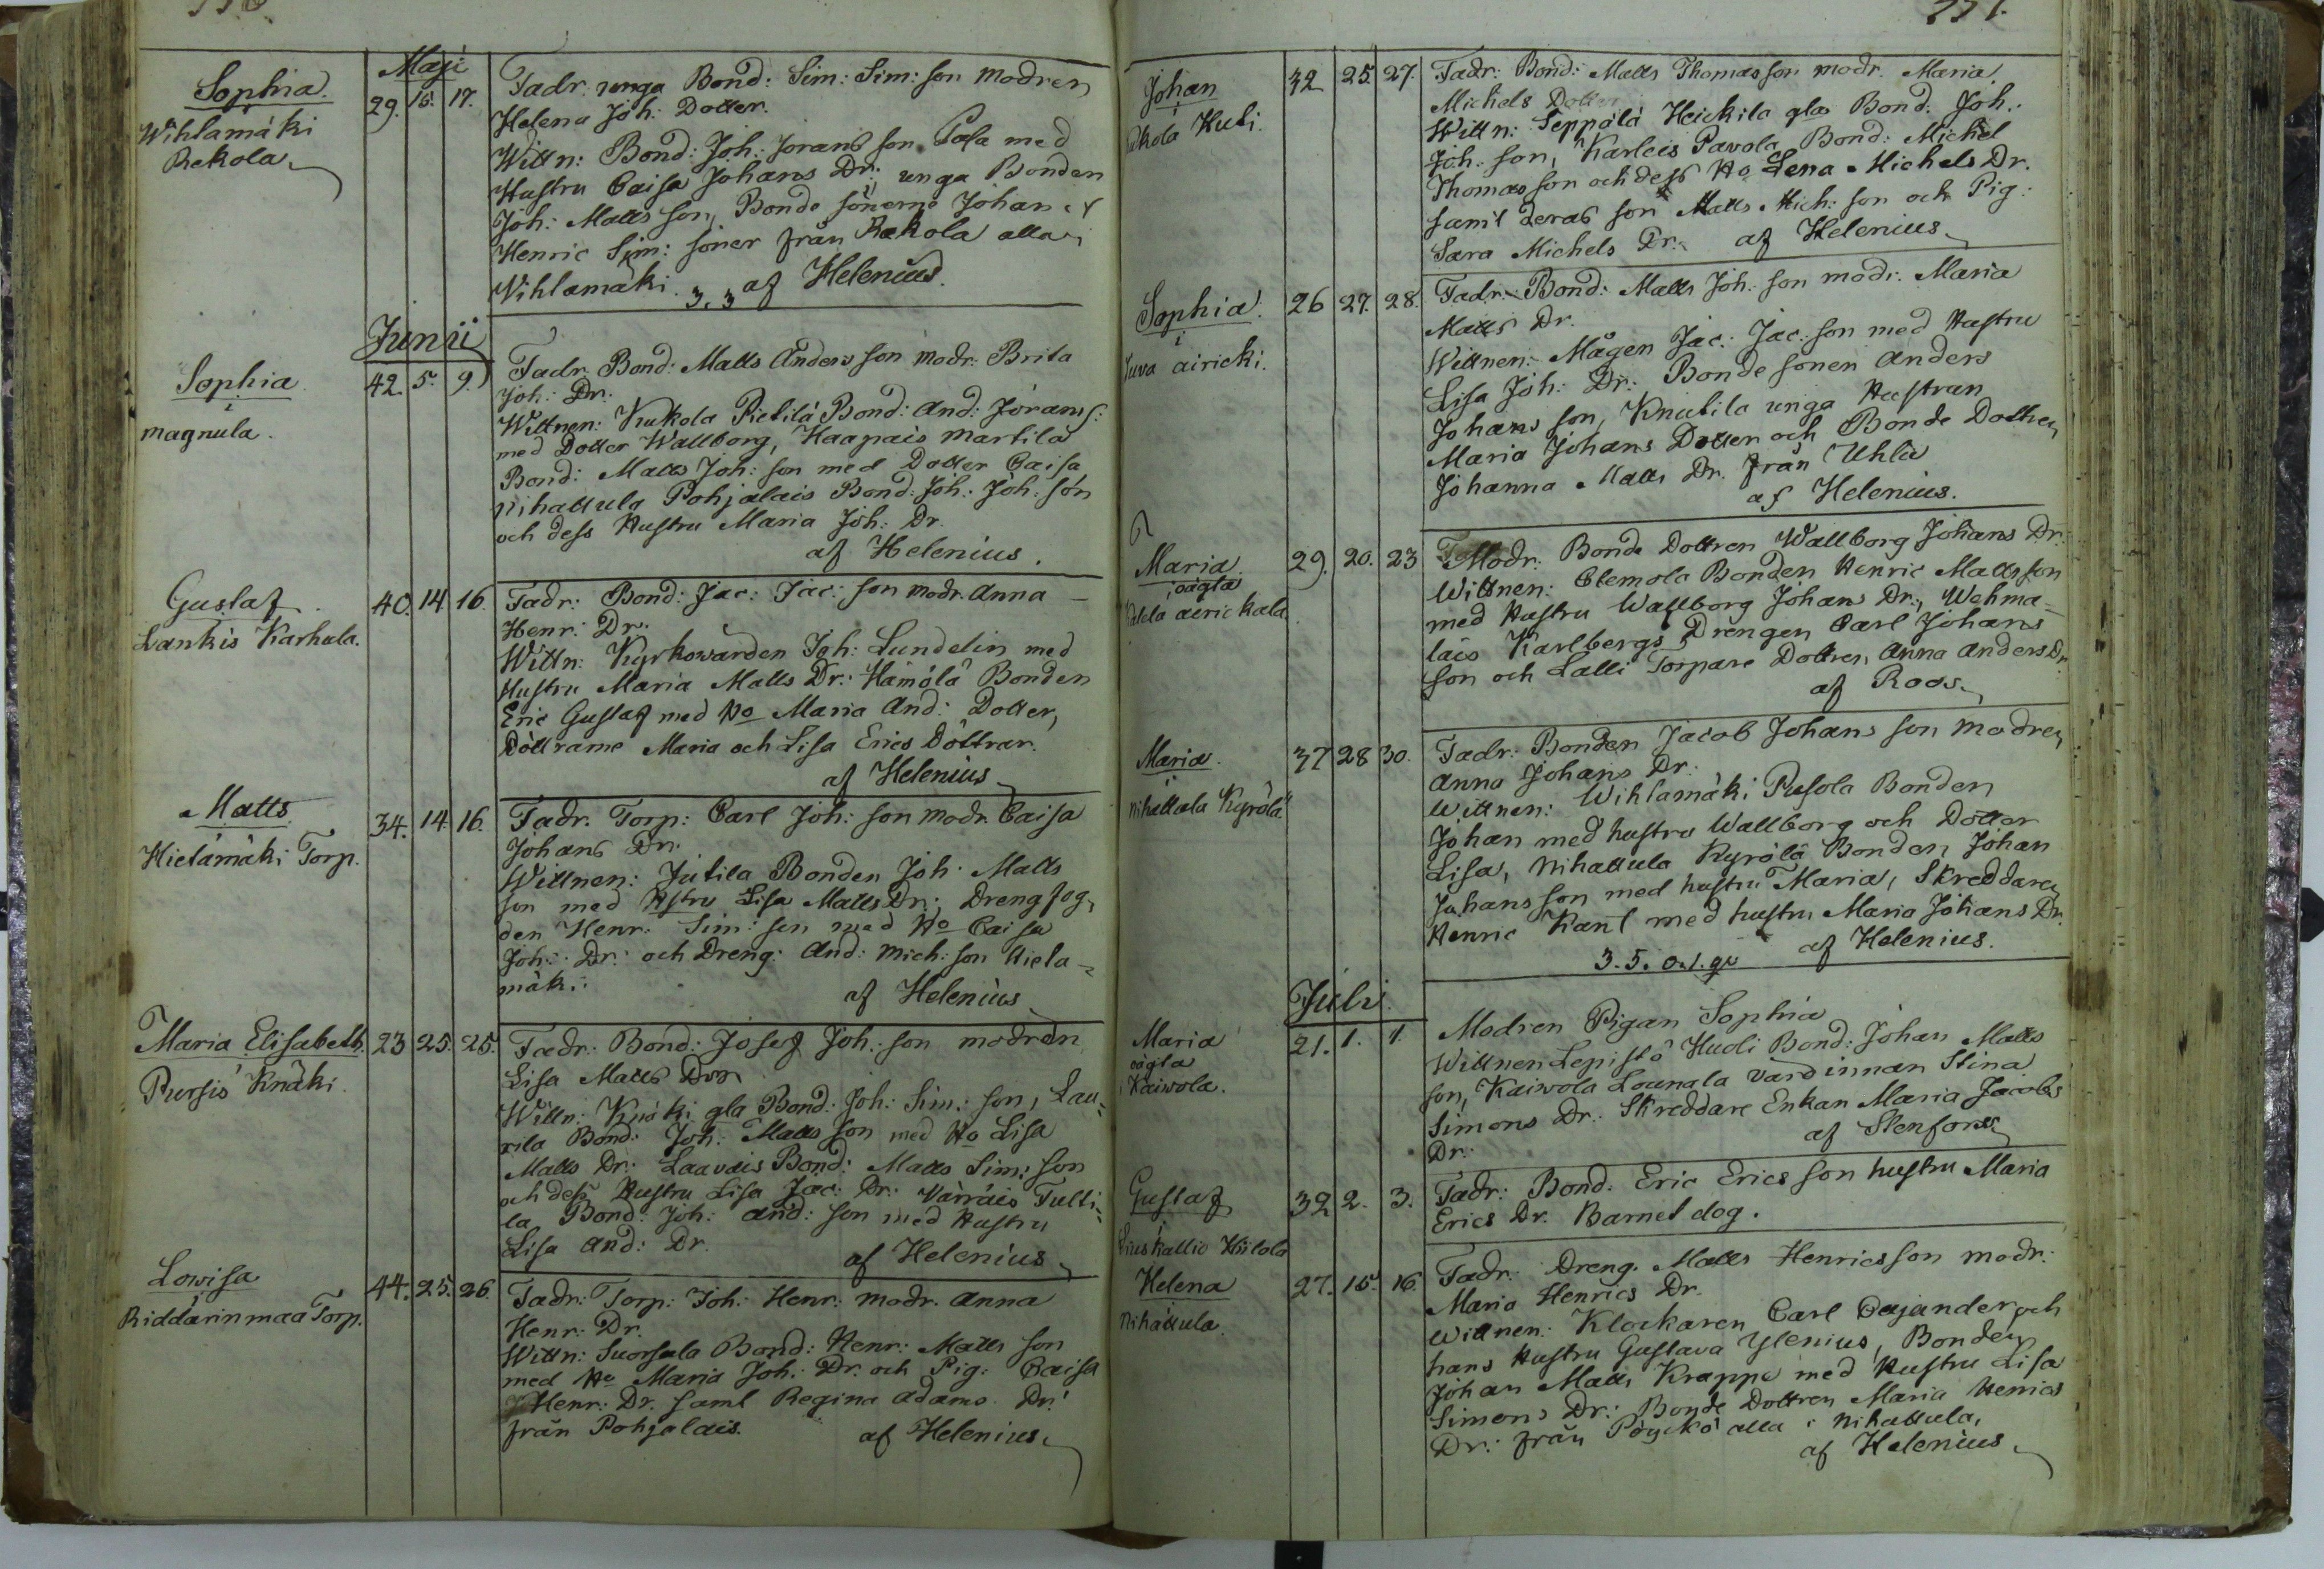 Maji
Sophia 29. 15. 17. Fadr. unga Bond: Sim: Sim: son modren
i
Wihlamäki Helena Joh: Dotter.
Rekola Wittn: Bond: Joh: Jorans son Påsa med
Hustru Caisa Johans Dr: unga Bonden
Joh: Matts son, Bonde sönerne Johan et
Henric Sim: söner från Rekola alla i
Wihlamäki. 3. 3 af Helenius.
Junii
Sophia 42. 5. 9. Fadr. Bond: Matts Anders son modr: Brita
i
magnula. Joh: Dr:
Wittnen: Kukola Pietilä Bond: And: Jörans s:
med Dotter Wallborg, Haapais Martila
Bond: Matts Joh: son med Dotter Caisa
Nihattula Pohjalais Bond: Joh: Joh: son
och dess Hustru Maria Joh: Dr.
af Helenius.
Gustaf 40. 14. 16. Fadr: Bond: Jac: Jac: son modr. Anna
Lankis Karhula. Henr: Dr.
Wittn: Kyrkowärden Joh: Lundelin med
Hustru Maria Matts Dr: Hämölä Bonden
Eric Gustaf med Ho Maria And: Dotter,
Döttrarne Maria och Lisa Erics Döttrar.
af Helenius
Matts 34. 14. 16. Fadr. Torp: Carl Joh: son modr. Caisa
Hietämäki Torp. Johans Dr.
Wittnen: Jutila Bonden Joh: Matts
son med Hstru Lisa Matts Dr: Drengfog-
den Henr: Sim: son med Ho Caisa
Joh: Dr: och Dreng: And: Mich: son Hieta-
mäki. af Helenius
Maria Elisabeth. 23 25. 25. Fadr. Bond: Josef Joh: son modren
Pursis Knäki. Lisa Matts Dr
Wittn: Knäki gla Bond: Joh: Sim: son, Lau-
rila Bond: Joh: Matts son med Ho Lisa
Matts Dr: Laavais Bond: Matts Sim: son
och dess Hustru Lisa Jac: Dr: Värräis Tulti-
la Bond: Joh: And: son med Hustru
Lisa And: Dr. af Helenius
Lowisa 44. 25. 26. Fadr: Torp: Joh: Henr: modr. Anna
Riddarinmaa Torp. Henr: Dr.
Wittn: Suorsala Bond: Henr: Matts son
med Ho Maria Joh: Dr. och Pig: Caisa
Henr: Dr. saml Regina Adams Dr:
från Pohjalais. af Helenius
Johan 32 25. 27. Fadr: Bond: Matts Thomasson modr. Maria
i Michels Dotter
Huti. Wittn: Seppälä Heickila gla Bond. Joh:
Joh: son, Karleis Pavola Bond: Michel
Thomasson och dess Ho Lena Michels Dr.
samt deras son Matts Mich: son och Pig:
Sara Michels Dr: af Helenius
Sophia 26 27. 28. Fadr: Bond: Matts Joh: son modr. Maria
i Matts Dr.
airicki. Wittnen: Mågen Jac: Jac: son med Hustru
Lisa Joh: Dr: Bondesonen Anders
Johans son, Knutila unga Hustrun
Maria Johans Dotter och Bonde Dotren
Johanna Matts Dr. från Uhlu
af Helenius.
Maria 29. 20. 23 Modr: Bonde Dottren Wallborg Johans Dr:
i oägta Wittnen: Clemola Bonden Henric Mattsson
aerickala med Hustru Wallborg Johans Dr:, Wehma-
läis Karlbergs Drengen Carl Johans
son och Lalli Torpare Dottren Anna Anders Dr
af Roos
Maria 37 28 30. Fadr: Bonden Jacob Johans son modren
i Anna Johans Dr:
Nihattula Kyrölä. Wittnen: Wihlamäki Pusola Bonden
Johan med hustru Wallborg och Dotter
Lisa, Nihattula Kyrölä Bonden Johan
Johansson med hustru Maria, Skreddaren
Henric Kant med hustru Maria Johans Dr.
3. 5. af Helenius.
Juli
Maria 21. 1. 1. Modren Pigan Sophia
oägta Wittnen Lepistö Huoli Bond: Johan Matts
Kaiwola. son, Kaiwola Lounala värdinnan Stina
Simons Dr: Skreddare Enkan Maria Jacobs
Dr: af Stenfors
Gustaf 32 2. 3. Fadr: Bond: Eric Erics son hustru Maria
i Erics Dr. Barnet dog.
Hiilola
Helena 27. 15. 16. Fadr. Dreng. Matts Henricsson modr.
Nihattula. Maria Henrics Dr.
Wittnen: Klockaren Carl Cajander och
hans Hustru Gustava Ylenius, Bonden
Johan Matts Krappe med Hustru Lisa
Simons Dr: Bonde Dottren Maria Henrics
Dr: från Pöyckö alla i Nihattula,
af Helenius